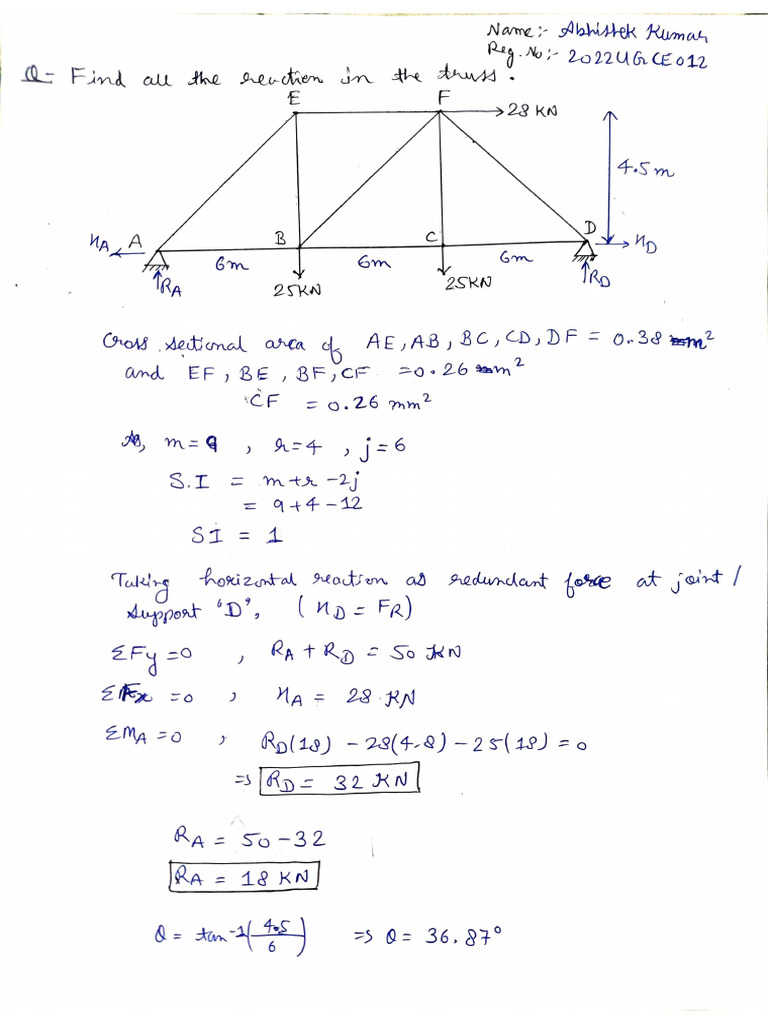 Name:- Abhishek Kumar
Reg. No:- 2022UGCE012
Q- Find all the reaction in the truss.
E F
28 KN
4.5m
HA A B C D HD
6m 6m 6m
RA 25KN 25KN RD
Cross sectional area of AE, AB, BC, CD, DF = 0.38 m²
and EF, BE, BF, CF = 0.26 m²
CF = 0.26 mm²
As, m = 9 , r = 4 , j = 6
S.I = m+r-2j
= 9+4-12
SI = 1
Taking horizontal reaction as redundant force at joint/
support 'D', (HD = FR)
ΣFy = 0 , RA + RD = 50 KN
ΣFx = 0 , HA = 28 KN
ΣMA = 0 , RD(18) - 28(4.8) - 25(18) = 0
=> RD = 32 KN
RA = 50-32
RA = 18 KN
θ = tan⁻¹(4.5/6) => θ = 36.87°